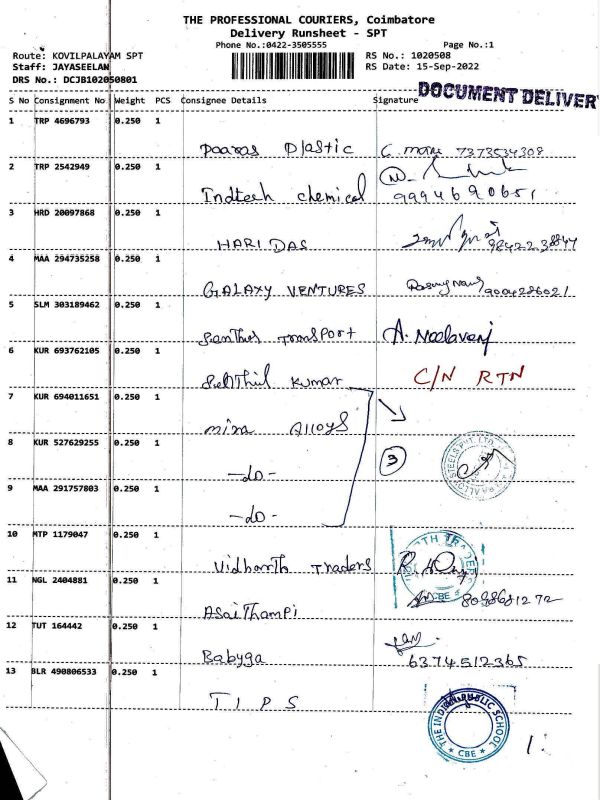 THE PROFESSIONAL COURIERS, Coimbatore
Delivery Runsheet - SPT
Phone No.:0422-3505555 Page No.:1
Route: KOVILPALAYAM SPT RS No.: 1020508
Staff: JAYASEELAN RS Date: 15-Sep-2022
DRS No.: DCJB102050801
DOCUMENT DELIVER
S No Consignment No Weight PCS Consignee Details Signature
1 TRP 4696793 0.250 1
Plastic 7373534308
2 TRP 2542949 0.250 1
Indtech chemical 9994690651
3 HRD 20097868 0.250 1
HARIDAS
4 MAA 294735258 0.250 1
GALAXY VENTURES 9004286021
5 SLM 303189462 0.250 1
Transport A. Neelaveni
6 KUR 693762105 0.250 1
Kumar C/N RTN
7 KUR 694011651 0.250 1
Alloys
8 KUR 527629255 0.250 1
-do- 3
9 MAA 291757803 0.250 1
-do-
10 MTP 1179047 0.250 1
Vidhanth Traders
11 NGL 2404881 0.250 1
Asaithampi
12 TUT 164442 0.250 1
Babyga 6374512365
13 BLR 490806533 0.250 1
T I P S
THE INDIAN PUBLIC SCHOOL
CBE